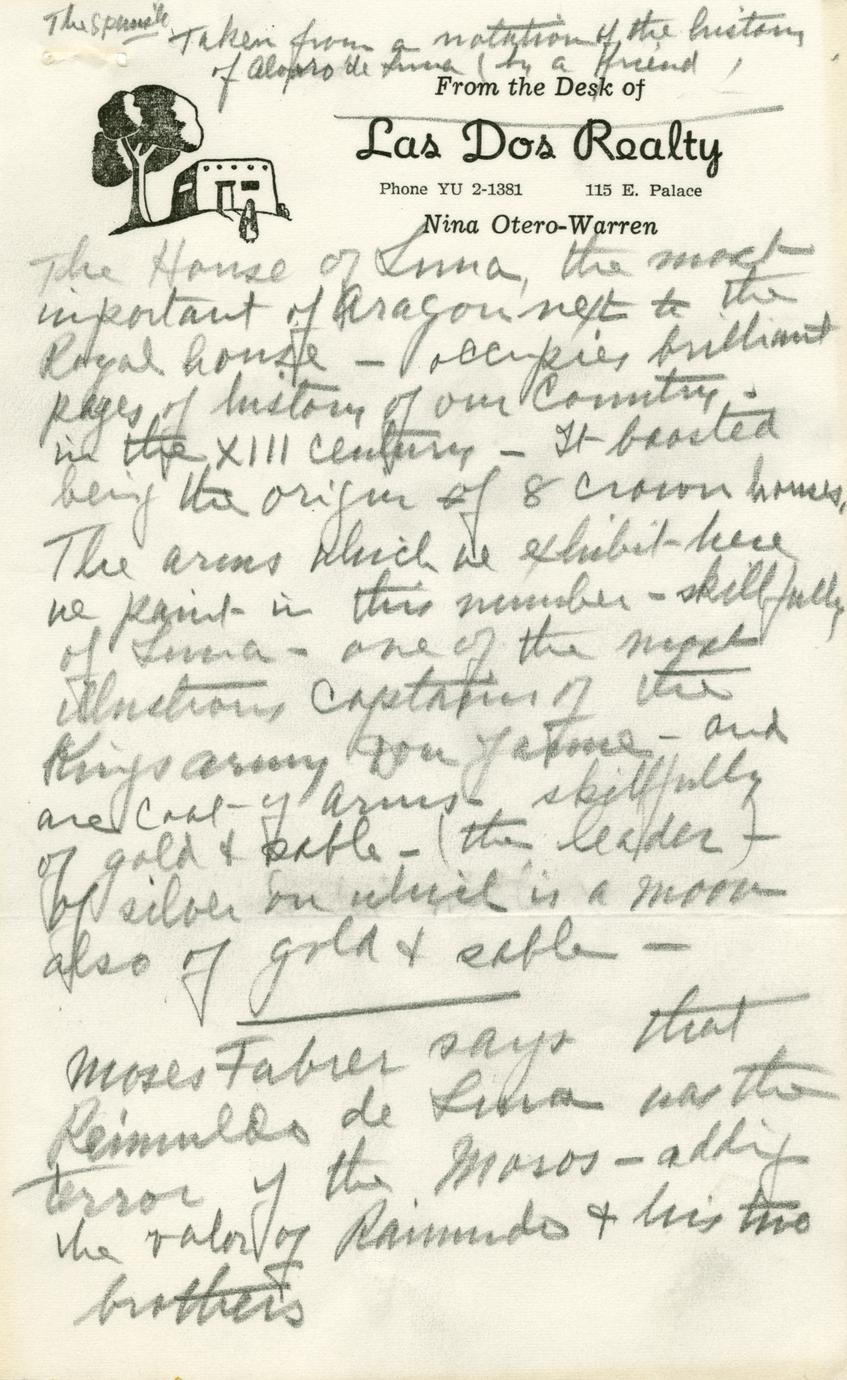 The Spanish
Taken from a notation of the history
of Alvaro de Luna (by a friend)
From the Desk of
Las Dos Realty
Phone YU 2-1381 115 E. Palace
Nina Otero-Warren
The House of Luna, the most
important of Aragon next to the
Royal house — occupies brilliant
pages of history of our Country.
in the XIII century — It boasted
being the origin of 8 crown houses.
The arms which we exhibit here
we paint in this number - skillfully
of Luna - one of the most
illustrious Captains of the
Kings army Don Jaime - and
are coat of arms skillfully
of gold & sable - (the leader) -
of silver on which is a moon
also of gold & sable —
Moses Fabrer says that
Reimuldo de Luna was the
terror of the Moros - adding
the valor of Raimundo & his two
brothers